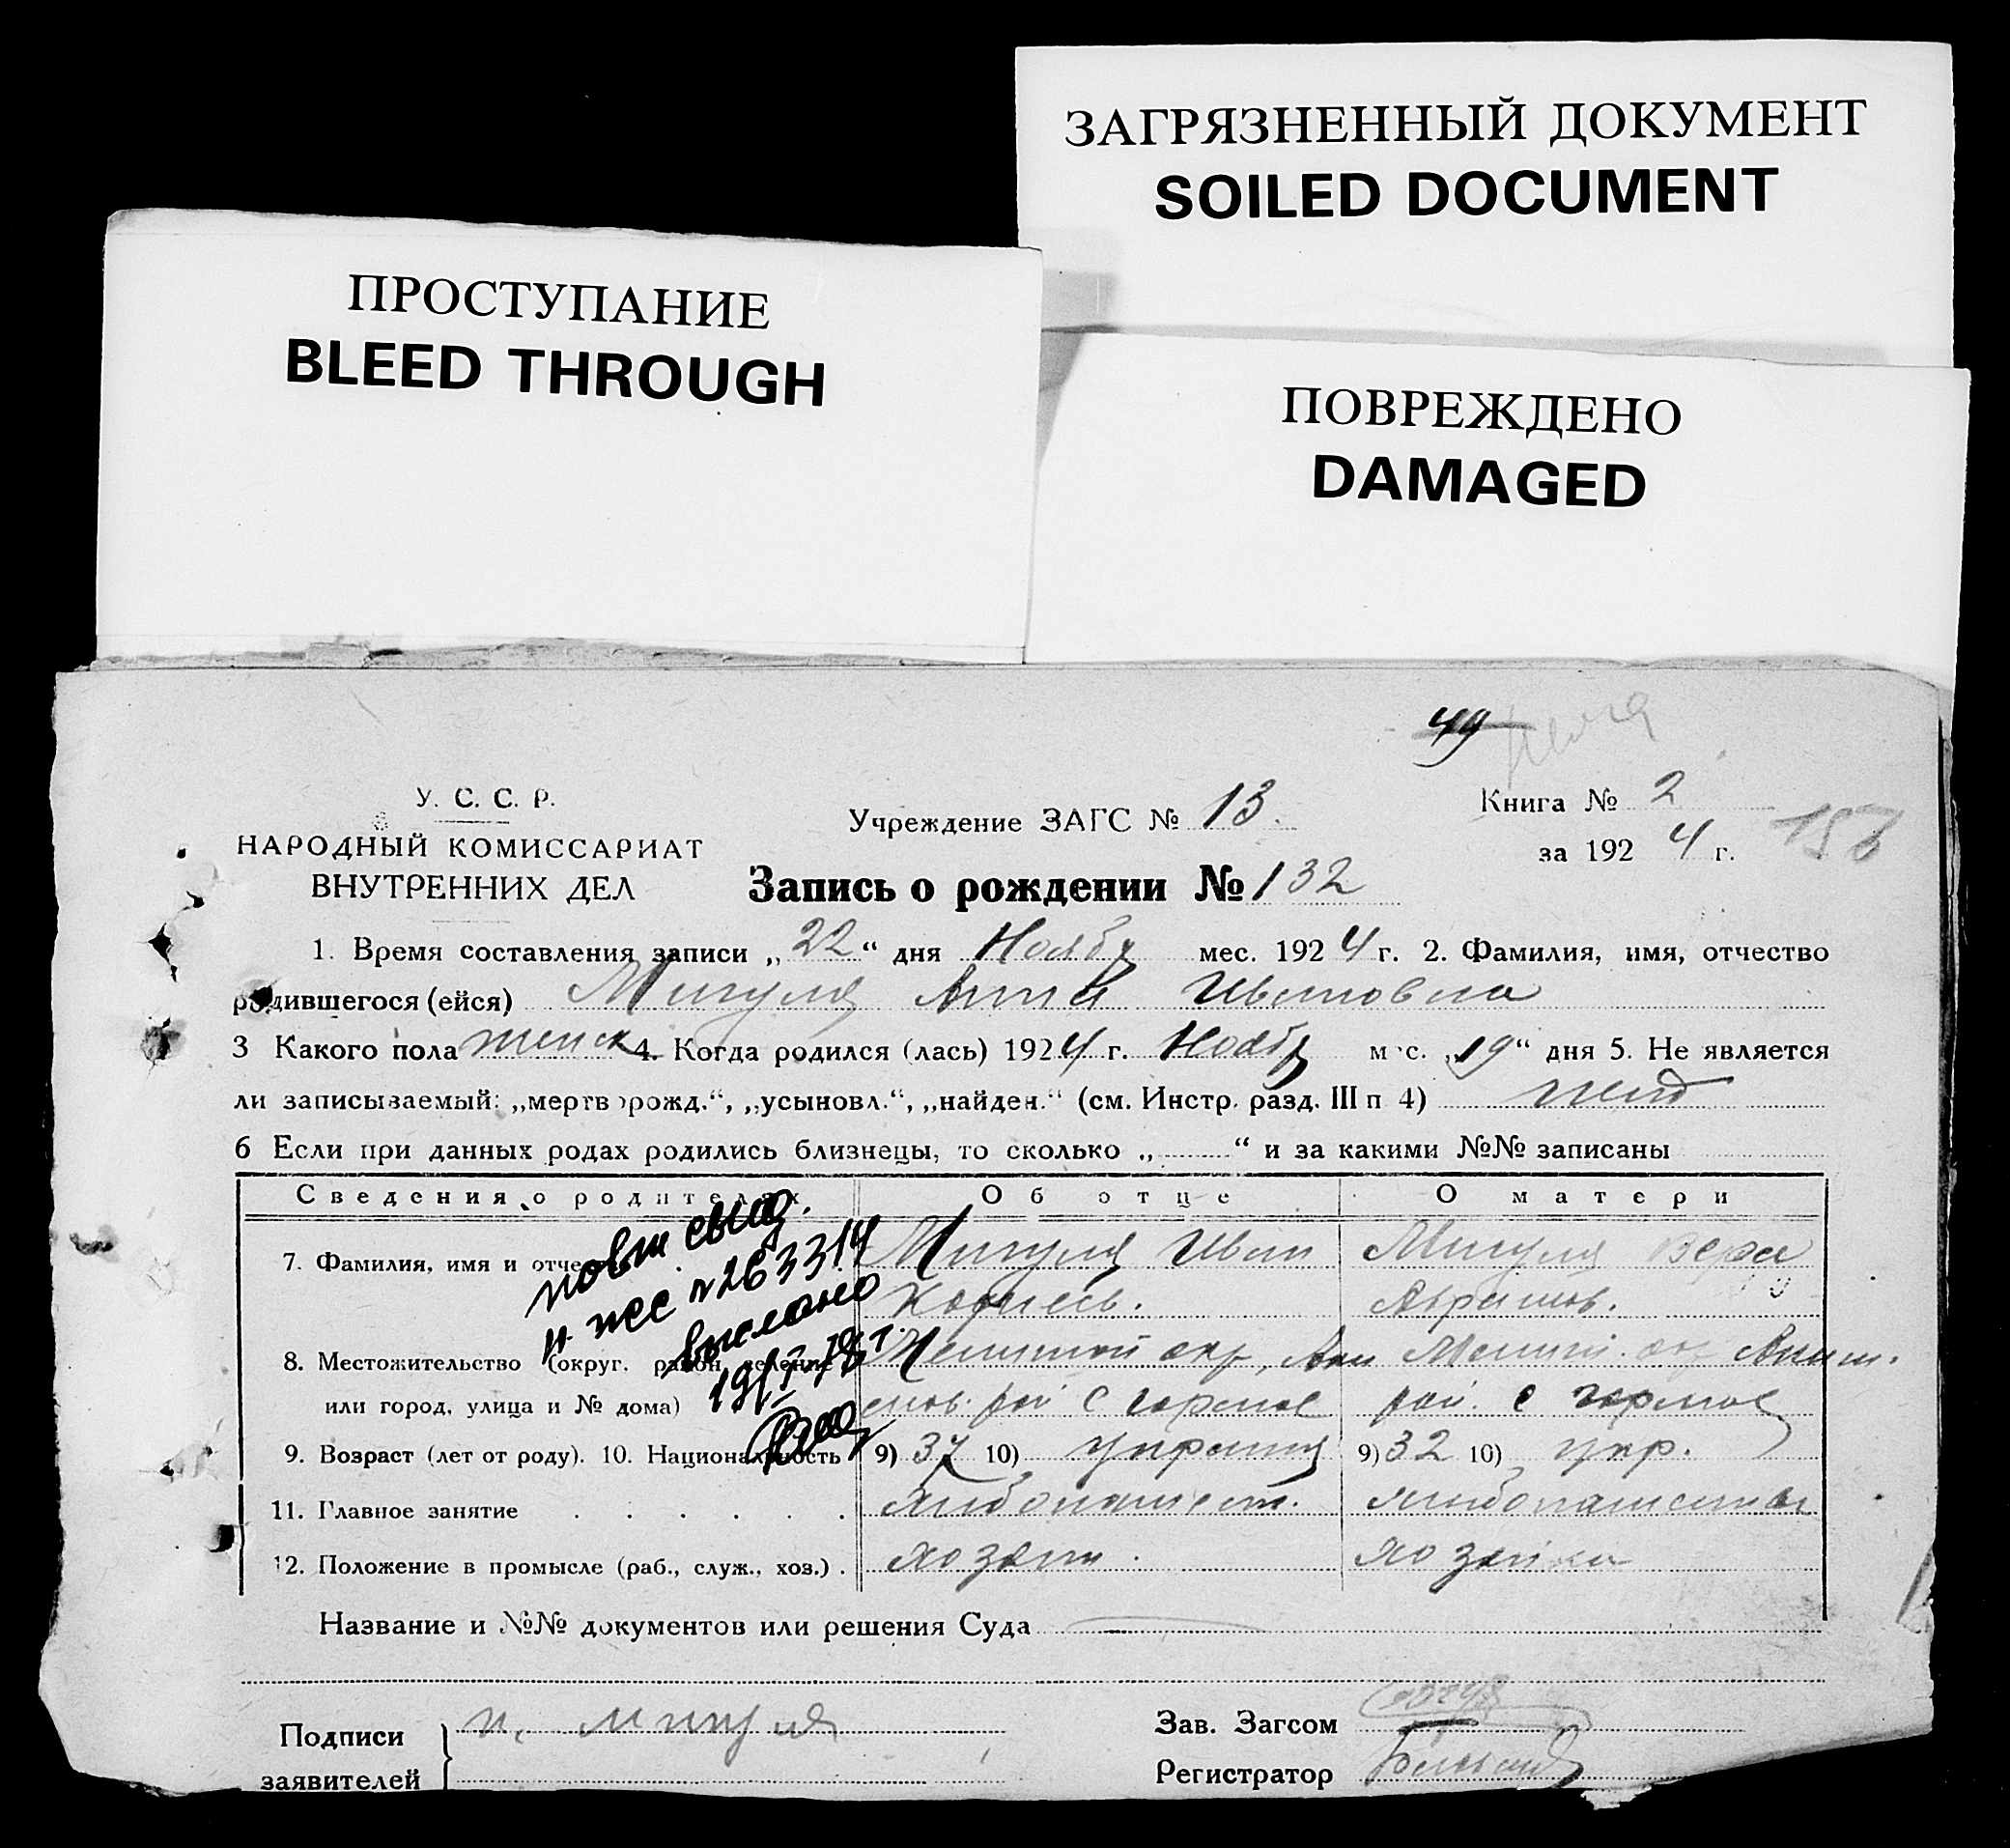 ЗАГРЯЗНЕННЫЙ ДОКУМЕНТ
SOILED DOCUMENT
ПРОСТУПАНИЕ
BLEED THROUGH
ПОВРЕЖДЕНО
DAMAGED
49
У. С. С. Р.
НАРОДНЫЙ КОМИССАРИАТ
ВНУТРЕННИХ ДЕЛ
Учреждение ЗАГС № 13.
Книга № 2
за 1924 г.
Запись о рождении № 132
1. Время составления записи „22“ дня Ноябр мес. 1924 г. 2. Фамилия, имя, отчество
родившегося (ейся) Мигуля Анна Ивановна
3 Какого пола женск 4. Когда родился (лась) 1924 г. Ноябр мес. „19“ дня 5. Не является
ли записываемый: „мертворожд.“, „усыновл.“, „найден.“ (см. Инстр. разд. III п 4)
6 Если при данных родах родились близнецы, то сколько „ “ и за какими №№ записаны
Сведения о родителях Об отце О матери
7. Фамилия, имя и отче Мигуля Иван Мигуля Вера
Корнеев. Абрамов.
повт свид.
№ 263314
выслано
8. Местожительство (округ. район, селение
или город, улица и № дома) рай с рай. с
9. Возраст (лет от роду). 10. Национальность 9) 37 10) украинц 9) 32 10) укр.
11. Главное занятие хлебопашест.
12. Положение в промысле (раб., служ., хоз.) . хозяин. хозяйка
Название и №№ документов или решения Суда
Подписи
заявителей
Мигуля
Зав. Загсом
Регистратор